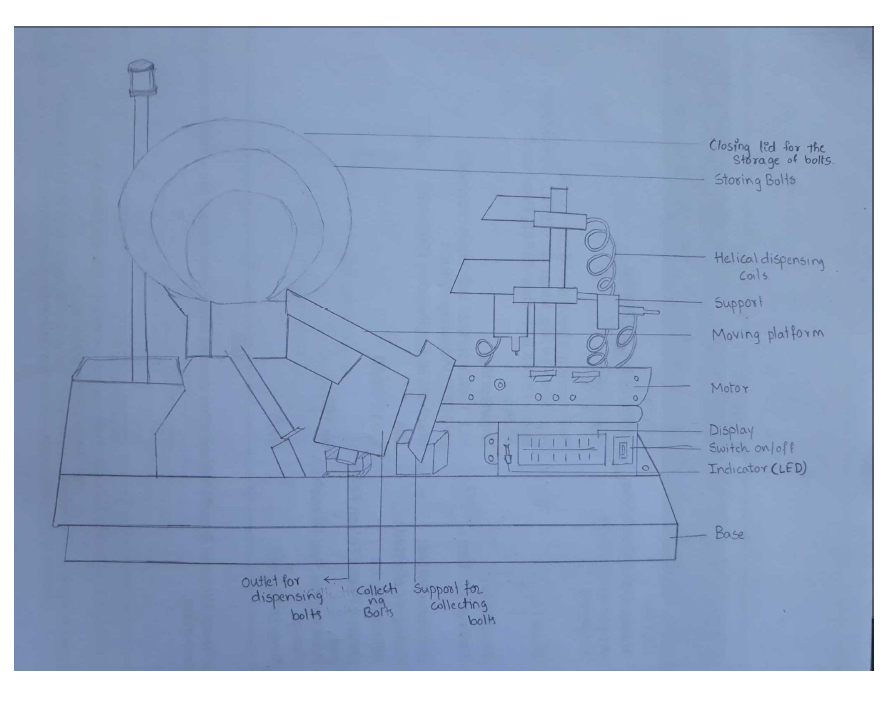 Closing lid for the
Storage of bolts.
Storing Bolts
Helical dispensing
coils
Support
Moving platform
Motor
Display
Switch on/off
Indicator (LED)
Base
Outlet for
dispensing
bolts
Collecti
ng
Bolts
Support for
collecting
bolts